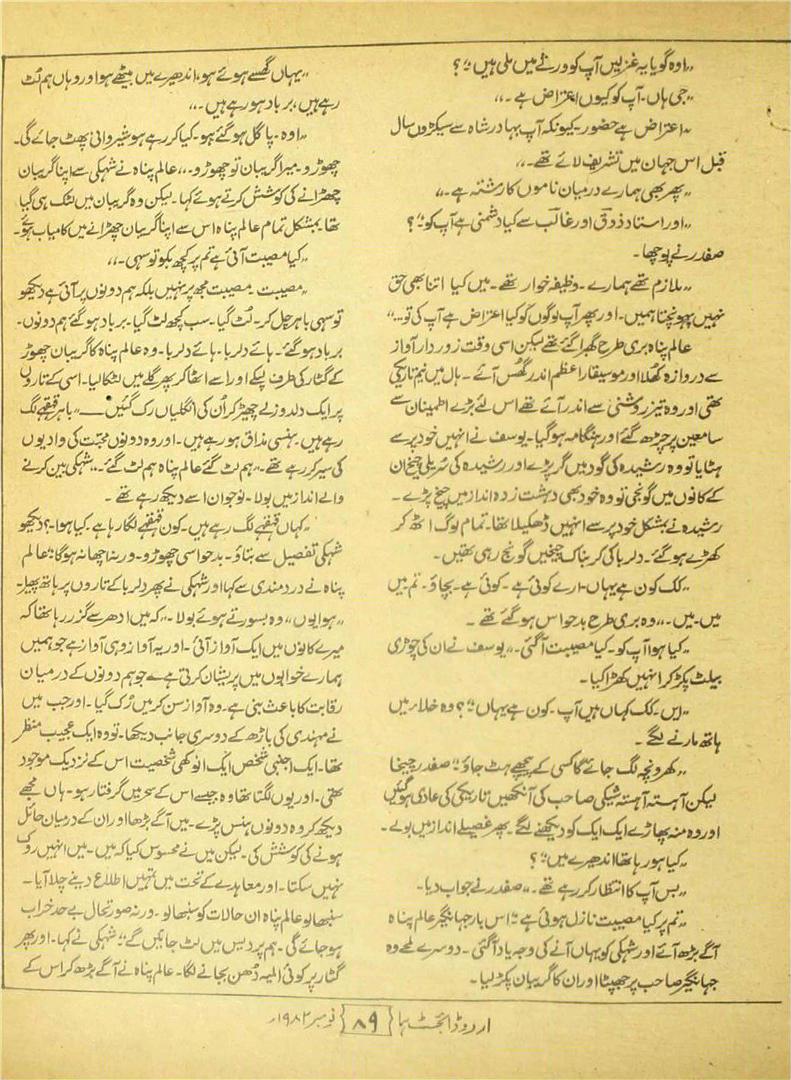 ”اوہ گویا یہ غزلیں آپ کو ورثے میں ملی ہیں“؟
”جی ہاں۔ آپ کو کیوں اعتراض ہے۔“
”اعتراض ہے حضور۔ کیونکہ آپ بہادر شاہ سے سیکڑوں سال
قبل اس جہان میں تشریف لائے تھے۔“
”پھر بھی ہمارے درمیان ناموں کا رشتہ ہے۔“
”اور استاد ذوق اور غالب سے کیا دشمنی ہے آپ کو“؟
صفدر نے پوچھا۔
”ملازم تھے ہمارے۔ وظیفہ خوار تھے۔ میں کیا اتنا بھی حق
نہیں پہونچتا ہمیں۔ اور پھر آپ لوگوں کو کیا اعتراض ہے آپ کی تو...“
عالم پناہ بری طرح گھبرا گئے تھے لیکن اسی وقت زوردار آواز
سے دروازہ کھلا اور موسیقار اعظم اندر گھس آئے۔ ہال میں نیم تاریکی
تھی اور وہ تیز روشنی سے اندر آئے تھے اس لئے بڑے اطمینان سے
سامعین پر چڑھ گئے اور ہنگامہ ہوگیا۔ یوسف نے انہیں خود پر سے
ہٹایا تو وہ رشیدہ کی گود میں گر پڑے اور رشیدہ کی سریلی چیخ ان
کے کانوں میں گونجی تو وہ خود بھی دہشت زدہ انداز میں چیخ پڑے۔
رشیدہ نے بمشکل خود پر سے انہیں ڈھکیلا تھا۔ تمام لوگ اٹھ کر
کھڑے ہوگئے۔ دلربا کی کربناک چیخیں گونج رہی تھیں۔
”کک کون ہے یہاں۔ ارے کوئی ہے۔ کوئی ہے۔ بچاؤ۔ تم ہیں
میں۔ میں۔“ وہ بری طرح بدحواس ہوگئے تھے۔
”کیا ہوا آپ کو۔ کیا مصیبت آگئی۔“ یوسف نے ان کی چوڑی
بیلٹ پکڑ کر انہیں کھڑا کیا۔
”ایں۔ کک کہاں ہیں آپ۔ کون ہے یہاں“؟ وہ خلا میں
ہاتھ مارنے لگے۔
”کھرونچہ لگ جائے گا کسی کے پیچھے ہٹ جاؤ“ صفدر چیخا
لیکن آہستہ آہستہ شیکی صاحب کی آنکھیں تاریکی کی عادی ہوگئیں
اور وہ منہ پھاڑے ایک ایک کو دیکھنے لگے۔ پھر غصیلے انداز میں بولے۔
”کیا ہو رہا تھا اندھیرے میں“؟
”بس آپ کا انتظار کر رہے تھے۔“ صفدر نے جواب دیا۔
”تم پر کیا مصیبت نازل ہوئی ہے“ اس بار جہانگیر عالم پناہ
آگے بڑھ آئے اور شیکی کو یہاں آنے کی وجہ یاد آگئی۔ دوسرے لمحے وہ
جہانگیر صاحب پر جھپٹا اور ان کا گریبان پکڑ لیا۔
”یہاں گھسے ہوئے ہو، اندھیرے میں بیٹھے ہو اور وہاں ہم لٹ
رہے ہیں، برباد ہو رہے ہیں۔“
”اوہ۔ پاگل ہوگئے ہو۔ کیا کر رہے ہو شیروانی پھٹ جائے گی۔
چھوڑو۔ میرا گریبان تو چھوڑو۔“ عالم پناہ نے شیکی سے اپنا گریبان
چھڑانے کی کوشش کرتے ہوئے کہا۔ لیکن وہ گریبان میں لٹک ہی گیا
تھا۔ بمشکل تمام عالم پناہ اس سے اپنا گریبان چھڑانے میں کامیاب ہوئے۔
”کیا مصیبت آئی ہے تم پر کچھ بکو تو سہی۔“
”مصیبت۔ مصیبت مجھ پر نہیں بلکہ ہم دونوں پر آئی ہے دیکھو
تو سہی باہر چل کر۔ لٹ گیا۔ سب کچھ لٹ گیا۔ برباد ہوگئے ہم دونوں۔
برباد ہوگئے۔ ہائے دلربا۔ ہائے دلربا۔ وہ عالم پناہ کا گریبان چھوڑ
کے گٹار کی طرف لپکے اور اسے اٹھا کر پھر گلے میں لٹکا لیا۔ اسی کے تاروں
پر ایک دلدوز لے چھیڑ کر اُن کی انگلیاں رک گئیں ـــ ”باہر قہقہے لگ
رہے ہیں۔ ہنسی مذاق ہو رہے ہیں۔ اور وہ دونوں محبت کی وادیوں
کی سیر کر رہے تھے۔“ ہم لٹ گئے عالم پناہ ہم لٹ گئے۔“ شیکی بین کرنے
والے انداز میں بولا۔ نوجوان اسے دیکھ رہے تھے۔
”کہاں قہقہے لگ رہے ہیں۔ کون قہقہے لگا رہا ہے۔ کیا ہوا۔؟ دیکھو
شیکی تفصیل سے بتاؤ۔ بدحواسی چھوڑو۔ ورنہ اچھا نہ ہوگا“ عالم
پناہ نے دردمندی سے کہا اور شیکی نے پھر دلربا کے تاروں پر ہاتھ پھیرا۔
”ہوا یوں“ وہ بسورتے ہوئے بولا۔ ”کہ میں ادھر سے گزر رہا تھا کہ
میرے کانوں میں ایک آواز آئی۔ اور یہ آواز وہی آواز ہے جو ہمیں
ہمارے خوابوں میں پریشان کرتی ہے۔ جو ہم دونوں کے درمیان
رقابت کا باعث بنی ہے۔ وہ آواز سن کر میں رُک گیا۔ اور جب میں
نے مہندی کی باڑھ کے دوسری جانب دیکھا۔ تو وہ ایک عجیب منظر
تھا۔ ایک اجنبی شخص ایک انوکھی شخصیت اس کے نزدیک موجود
تھی۔ اور یوں لگتا تھا وہ جیسے اس کے سحر میں گرفتار ہو۔ ہاں مجھے
دیکھ کر وہ دونوں ہنس پڑے۔ میں آگے بڑھا اور ان کے درمیان حائل
ہونے کی کوشش کی۔ لیکن میں نے محسوس کیا کہ میں۔ میں انہیں روک
نہیں سکتا۔ اور معاہدے کے تحت میں تمہیں اطلاع دینے چلا آیا۔
سنبھالو عالم پناہ ان حالات کو سنبھالو۔ ورنہ صورتحال بے حد خراب
ہو جائے گی۔ ہم پردیس میں لٹ جائیں گے“ شیکی نے کہا۔ اور پھر
گٹار پر کوئی المیہ دُھن بجانے لگا۔ عالم پناہ نے آگے بڑھ کر اس کے
اردو ڈائجسٹ ہما {۸۹} نومبر ۱۹۸۲ء